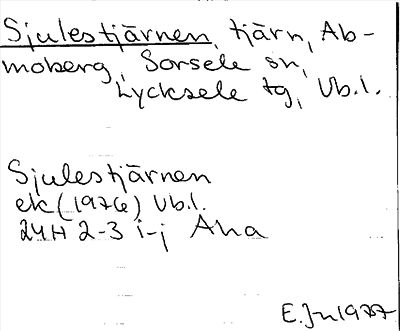 Sjulestjärnen, tjärn, Ab-
moberg, Sorsele sn,
Lycksele tg, Vb.l.
Sjulestjärnen
ek (1976) Vb.l.
24H 2-3 i-j Aha
E. Jn 1977